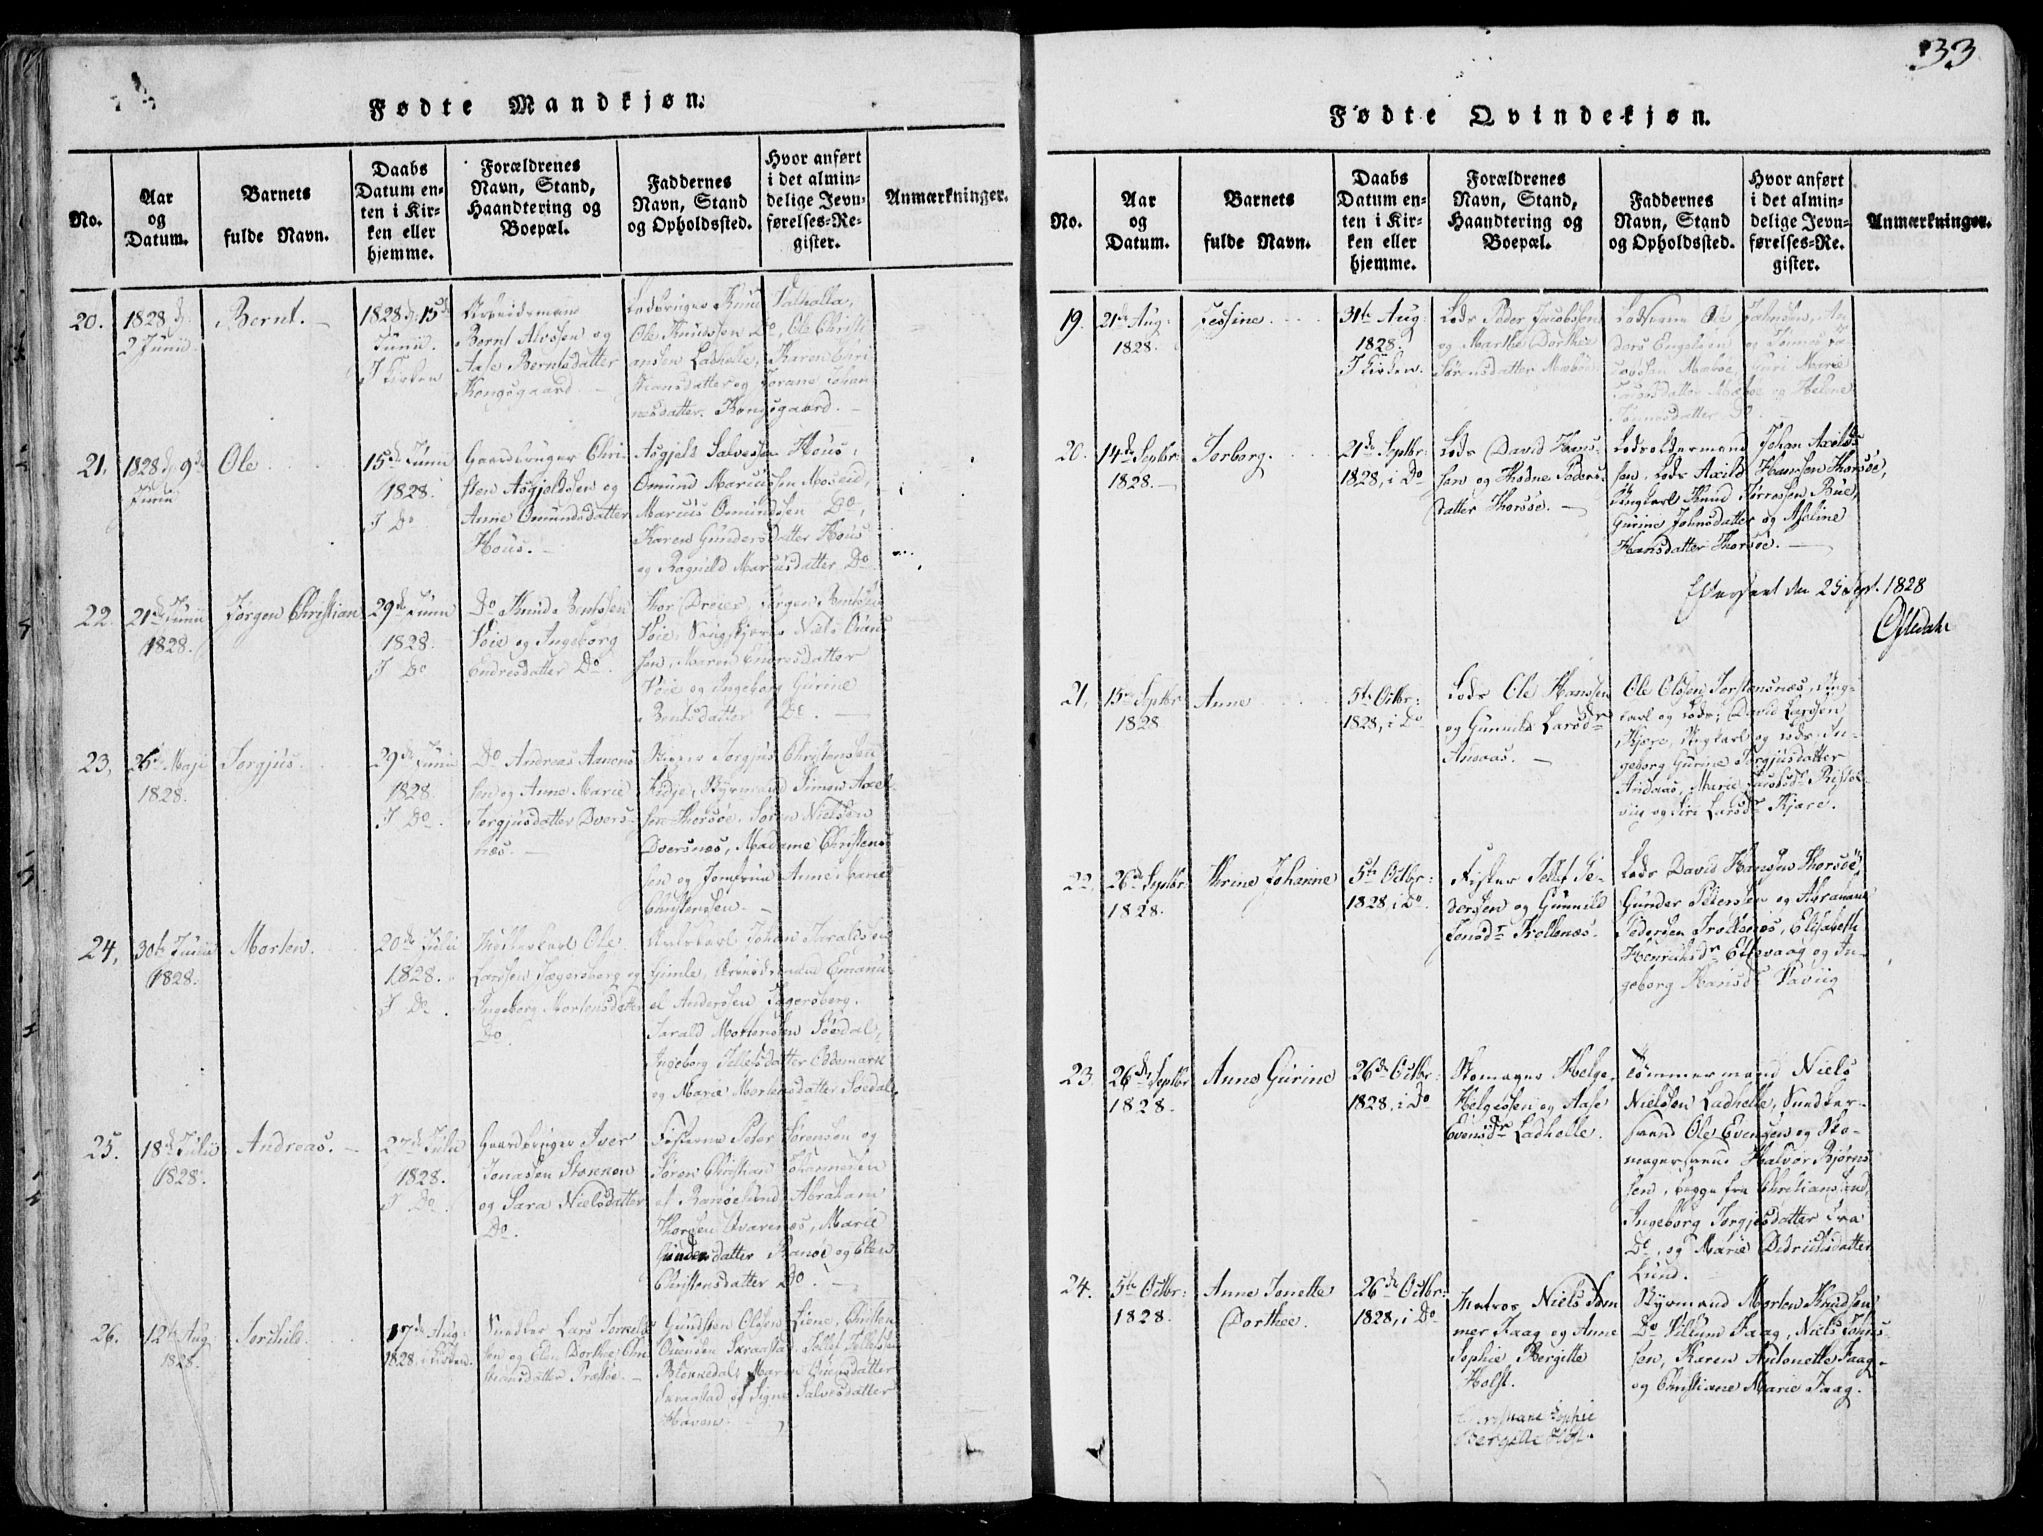 33
Fødte Mandkjøn.
No.
Aar og Datum.
Barnets fulde Navn.
Daabs Datum enten i Kirken eller hjemme.
Forældrenes Navn, Stand, Haandtering og Boepæl.
Faddernes Navn, Stand og Opholdssted.
Hvor anført i det almindelige Jevnførelses-Register.
Anmærkninger.
20.
1828 d.
2 Junii.
Bernt.
1828 d. 15de
Junii.
I Kirken
Arbeidsmand
Bernt Alvssen og
Aase Berntsdatter
Kongsgaard.
Ole Knudssen Do, Ole Christi
ansen Ladhelle, Karen Chri
stiansdatter og Jorane Johan
nesdatter. Kongsgaard.
21.
1828 d. 9de
Junii
Ole
15de Junii
1828.
I Do
Gaardbruger Chri
sten Asgjeldsen og
Anne Omundsdatter
Høus.
Asgjeld Salvesen Høus,
Omund Mariussen Moseid,
Marius Omundsen Do,
Karen Gundersdatter Høus
og Ragnild Mariusdatter Do
22.
21de Junii
1828.
Jørgen Christian
29de Junii
1828.
I Do
Do Knud Bentssen
Vøie og Ingeborg
Endresdatter Do.
Thor Dreier, Jørgen Bentssen
Vøie, Niels
sen, Maren Endresdatter
Vøie og Ingeborg Gurine
Bentsdatter Do.
23,
Maji
1828.
Torgjus.
29de Junii
1828.
I Do.
Do Andreas Aanons
sen og Anne Marie
Torgjusdatter Dvers-
næs.
Torgjus Christensen
Fidje, Styrmand Simon Axel
sen Thorsøe, Søren Nielsen
Dversnæs, Madame Christens
sen og Jomfrue Anne Marie
Christensen.
24,
30te Junii
1828.
Morten.
20de Julii
1828.
I Do.
Ole
Larsen Jegersberg og
Ingeborg Mortensdatter
Do.
Johan Taraldsen
Gimle, Arbeidsmand Emanu
el Andersen Jegersberg.
Tarald Mortensen Søedal,
Ingeborg Tellefsdatter Oddemark
og Marie Mortensdatter Søedal.
25.
18de Julii
1828.
Andreas.
27de Julii
1828.
I Do
Gaardbruger Iver
Jonassen Stor
og Sara Nielsdatter
Do.
Peter Sørensen og
Søren Christian Johannesen
af Randøesund, Abraham
Thorsen Qvarenæs, Marie
Gundersdatter Randøe og Elen
Christensdatter Do.
26.
12te Aug
1828.
Torkild.
17de Aug:
1828, i Kirken.
Lars Torkelds
sen og Elen Dorthea Chri
stiansdatter Præstøe.
Gundsten Olssen Liene, Christen
Ouensen Skraastad, Tellef Tellefsen
Blørnedal, Maren Gunsdatter
Skraastad og Signe Salvesdatter
Haaven.
Fødte Qvindekjøn.
No.
Aar og Datum.
Barnets fulde Navn.
Daabs Datum enten i Kirken eller hjemme.
Forældrenes Navn, Stand, Haandtering og Boepæl.
Faddernes Navn, Stand og Opholdssted.
Hvor anført i det almindelige Jevnførelses-Re.gister.
Anmærkninger.
19.
21de Aug:
1828.
Jessine.
31te Aug:
1828.
I Kirken.
Lods Peder Jacobsen
og Marthe Dorthea
Sørensdatter Mæbøe.
Lodserne Ole Johnsen, An
ders Engelsen og Tønnes Ja
cobsen Mæbøe,
Jacobsdatter Mæbøe og Helene
Tønnesdatter Do.
20.
14de Septbr:
1828.
Torborg.
21de Septbr:
1828, i Do
Lods David Hans-
sen og Thodne Peders
datter Thorsøe.
Lodsoldermand Johan Axels
sen, Lods Axild Hanssen Thorsøe,
Ungkarl Knud Torressen Bue,
Gurine Johnsdatter og Aseline
Hansdatter Thorsøe.
Efterseet den 25 Sept. 1828
Oftedahl
21.
15de Septbr:
1828
Anne
5te Octbr:
1828, i Do
Lods Ole Hanssen
og Gunnild Larsdr
Andaas.
Ole Olssen Torstensnæs, Ung-
karl og Lods; David Larssen
Kjære, Ungkarl og Lods, In-
geborg Gurine Torgjusdatter
Andaas, Marie Jacobsdr
vig og Siri Larsdr Kjære.
22.
26de Septbr:
1828.
Thrine Johanne
5te Octbr:
1828, i Do
Fisker Tellef Pe-
dersen og Gunnild
Jensdr Trollenæs.
Lods David Hansen Thorsøe,
Gunder Petersen og Abraham
Pedersen Trollenæs, Elisabeth
Henrichsdr Ettevaag og In-
geborg Hansdr Vraavig
23.
26de Septbr
1828.
Anne Gurine
26de Octbr:
1828, i Do
Skomager Helge
Helgessen og Aase
Evensdr Ladhelle.
Tømmermand Niels
Nielssen Ladhelle, Snedker-
svend Ole Evensen og Sko-
magersvend Halvor Bjørns
sen, begge fra Christiansand,
Ingeborg Torgjesdatter fra
Do, og Marie Didrichsdatter
Lund.
24.
5te Octbr:
1828.
Anne Jonette
Dorthee.
26de Octbr:
1828, i Do
Matros Niels Tøn
mer Faag og Anne
Sophie Bergitte
Holst.
Christiane Sophie
Bergitte Holst.
Styrmand Morten Knudsen
Do Villum Faag, Niels Johns
sen, Karen Antonette Faag
og Christiane Marie Faag.